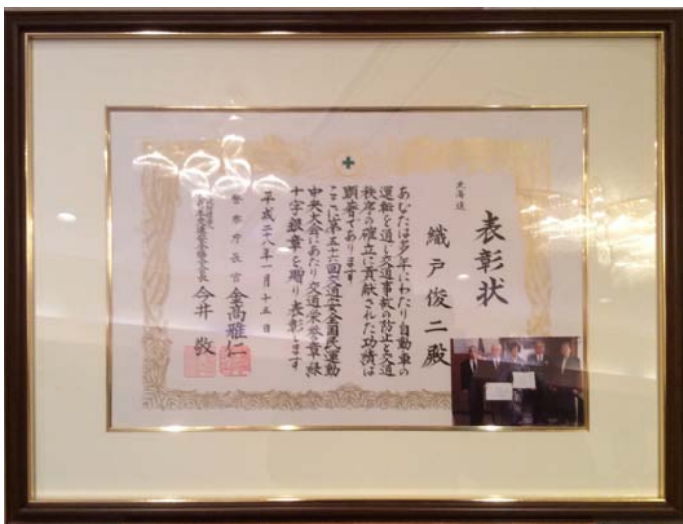 表彰状
北海道
織戸俊二殿
あなたは多年にわたり自動車の
運転を通し交通事故の防止と交通
秩序の確立に貢献された功績は
顕著であります
ここに第五十六回交通安全国民運動
中央大会にあたり交通栄誉章緑
十字銀章を贈り表彰します
平成二十八年一月十五日
警察庁長官 金高雅仁
全日本交通安全協会会長 今井敬